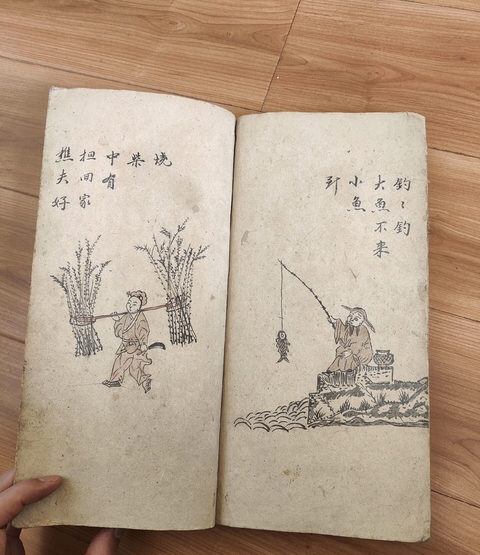 钓〻钓
大魚不来
小魚
到
烧
柴
中有
担回家
樵夫好